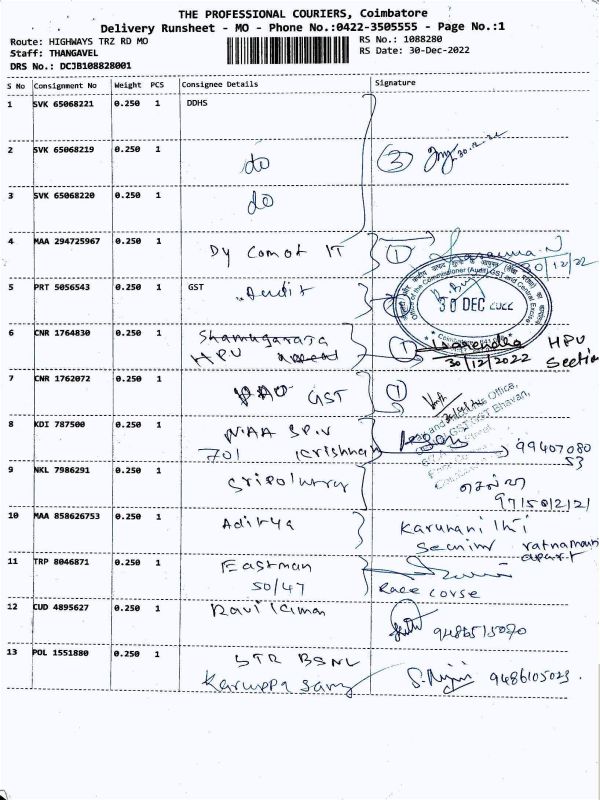 THE PROFESSIONAL COURIERS, Coimbatore
Delivery Runsheet - MO - Phone No.:0422-3505555 - Page No.:1
Route: HIGHWAYS TRZ RD MO
RS No.: 1088280
Staff: THANGAVEL
RS Date: 30-Dec-2022
DRS No.: DCJB108828001
S No Consignment No Weight PCS Consignee Details Signature
1 SVK 65068221 0.250 1 DDHS
2 SVK 65068219 0.250 1 do 3 30.12.22
3 SVK 65068220 0.250 1 do
4 MAA 294725967 0.250 1 Dy Comot IT 1
30/12/22
5 PRT 5056543 0.250 1 GST Audit
30 DEC 2022
6 CNR 1764830 0.250 1 Shamugaraja 1 Nagendra HPU
HPU 30/12/2022 Section
7 CNR 1762072 0.250 1 PAO GST 1
8 KDI 787500 0.250 1 NAA SP.V
701 Krishnah 99407080
53
9 NKL 7986291 0.250 1
10 MAA 858626753 0.250 1 Aditya Karunani
ratnamani
apart
11 TRP 8046871 0.250 1 Eastman
50/47 Race corse
12 CUD 4895627 0.250 1 Ravi Kuman
13 POL 1551880 0.250 1 STR BSNL
Karuppa Samy 9486105023.